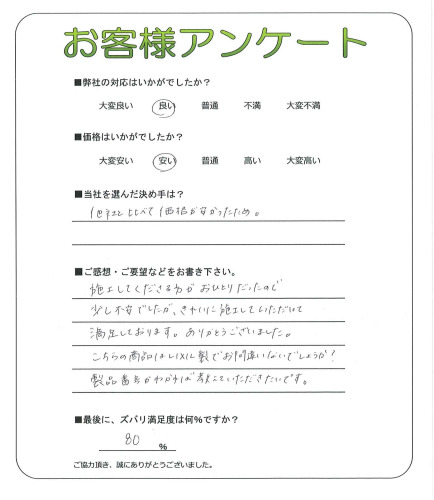 お客様アンケート
■弊社の対応はいかがでしたか？
大変良い 良い 普通 不満 大変不満
■価格はいかがでしたか？
大変安い 安い 普通 高い 大変高い
■当社を選んだ決め手は？
他社と比べて価格が安かったため。
■ご感想・ご要望などをお書き下さい。
施工してくださる方がおひとりだったので
少し不安でしたが、きれいに施工していただいて
満足しております。ありがとうございました。
こちらの商品はLIXIL製でお間違いないでしょうか?
製品番号がわかれば教えていただきたいです。
■最後に、ズバリ満足度は何%ですか？
80 %
ご協力頂き、誠にありがとうございました。